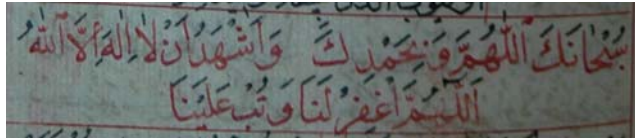 سُبْحَانَكَ اَللّٰهُمَّ وَبِحَمْدِكَ وَاَشْهَدُ اَنْ لَا اِلٰهَ اِلَّا اَللّٰهُ
اَللّٰهُمَّ اغْفِرْ لَنَا وَتُبْ عَلَيْنَا